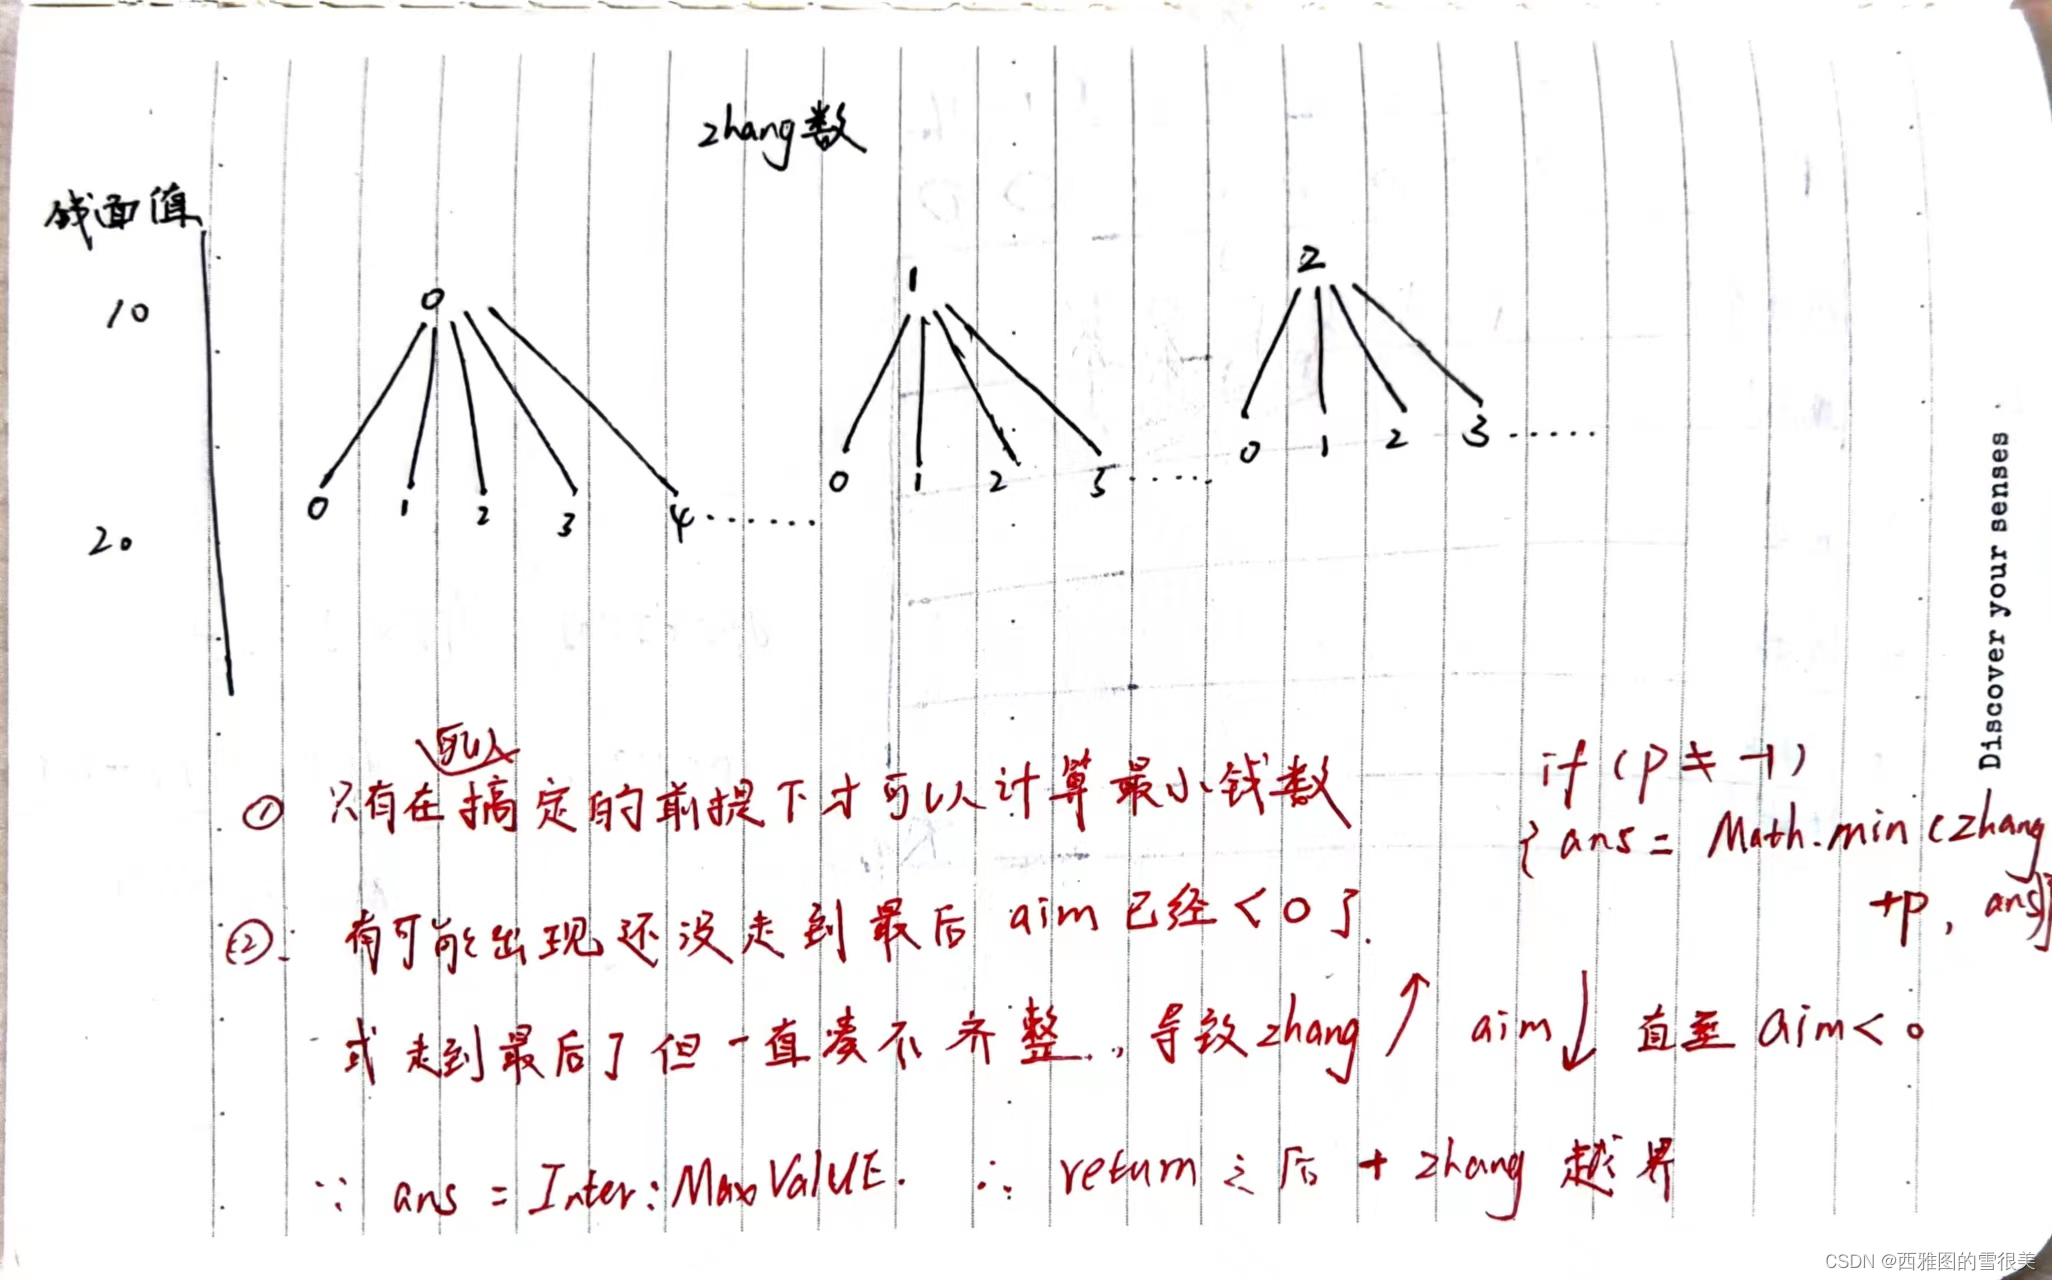 zhang数
钱面值
10
0
1
2
0 1 2 3 4 ......
0 1 2 5 .....
0 1 2 3 ......
20
① 只有在搞定的前提下才可以计算最小钱数
if (p ≠ -1)
{ ans = Math.min (zhang
+p, ans)}
②: 有可能出现还没走到最后 aim 已经 < 0 了.
或走到最后了但一直凑不齐整..,导致zhang↑ aim↓ 直至 aim < 0
∵ ans = Inter:MaxValUE. ∴ return 之后 + zhang 越界
Discover your senses
CSDN @西雅图的雪很美